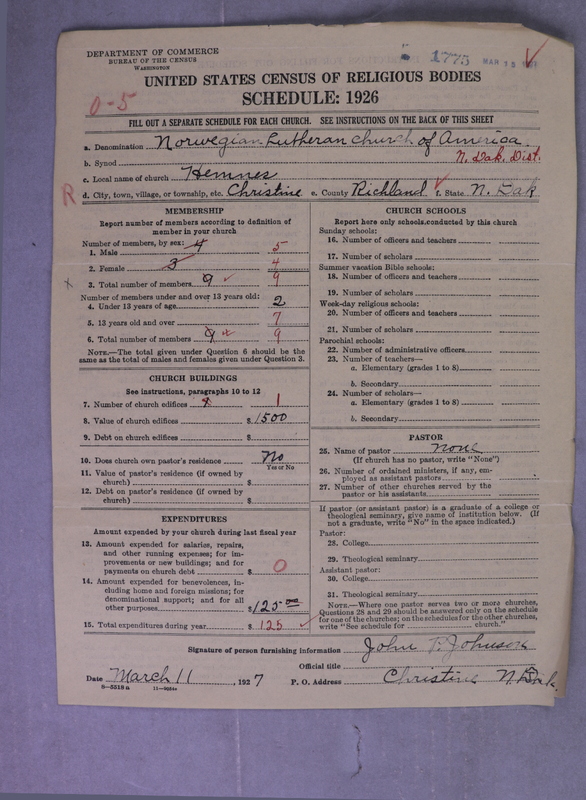 DEPARTMENT OF COMMERCE
BUREAU OF THE CENSUS
WASHINGTON
1775 MAR 15
UNITED STATES CENSUS OF RELIGIOUS BODIES
SCHEDULE: 1926
0-5
FILL OUT A SEPARATE SCHEDULE FOR EACH CHURCH. SEE INSTRUCTIONS ON THE BACK OF THIS SHEET
a. Denomination Norwegian Lutheran church of America
b. Synod N. Dak. Dist.
c. Local name of church Hemnes
R d. City, town, village, or township, etc. Christine e. County Richland f. State N. Dak
MEMBERSHIP
Report number of members according to definition of
member in your church
Number of members, by sex:
1. Male 4 5
2. Female 3 4
x 3. Total number of members 9 9
Number of members under and over 13 years old:
4. Under 13 years of age 2
5. 13 years old and over 7
6. Total number of members 9 9
NOTE.—The total given under Question 6 should be the
same as the total of males and females given under Question 3.
CHURCH BUILDINGS
See instructions, paragraphs 10 to 12
7. Number of church edifices 1
8. Value of church edifices $ 1500
9. Debt on church edifices $
10. Does church own pastor's residence No
Yes or No
11. Value of pastor's residence (if owned by
church) $
12. Debt on pastor's residence (if owned by
church) $
EXPENDITURES
Amount expended by your church during last fiscal year
13. Amount expended for salaries, repairs,
and other running expenses; for im-
provements or new buildings; and for
payments on church debt $ 0
14. Amount expended for benevolences, in-
cluding home and foreign missions; for
denominational support; and for all
other purposes $ 125 00
15. Total expenditures during year $ 125
CHURCH SCHOOLS
Report here only schools conducted by this church
Sunday schools:
16. Number of officers and teachers
17. Number of scholars
Summer vacation Bible schools:
18. Number of officers and teachers
19. Number of scholars
Week-day religious schools:
20. Number of officers and teachers
21. Number of scholars
Parochial schools:
22. Number of administrative officers
23. Number of teachers—
a. Elementary (grades 1 to 8)
b. Secondary
24. Number of scholars—
a. Elementary (grades 1 to 8)
b. Secondary
PASTOR
25. Name of pastor none
(If church has no pastor, write "None")
26. Number of ordained ministers, if any, em-
ployed as assistant pastors
27. Number of other churches served by the
pastor or his assistants
If pastor (or assistant pastor) is a graduate of a college or
theological seminary, give name of institution below. (If
not a graduate, write "No" in the space indicated.)
Pastor:
28. College
29. Theological seminary
Assistant pastor:
30. College
31. Theological seminary
NOTE.—Where one pastor serves two or more churches,
Questions 28 and 29 should be answered only on the schedule
for one of the churches; on the schedules for the other churches,
write "See schedule for church."
Signature of person furnishing information John P. Johnson
Official title
Date March 11, 1927 P. O. Address Christine N. Dak.
8—5318a 11—9034